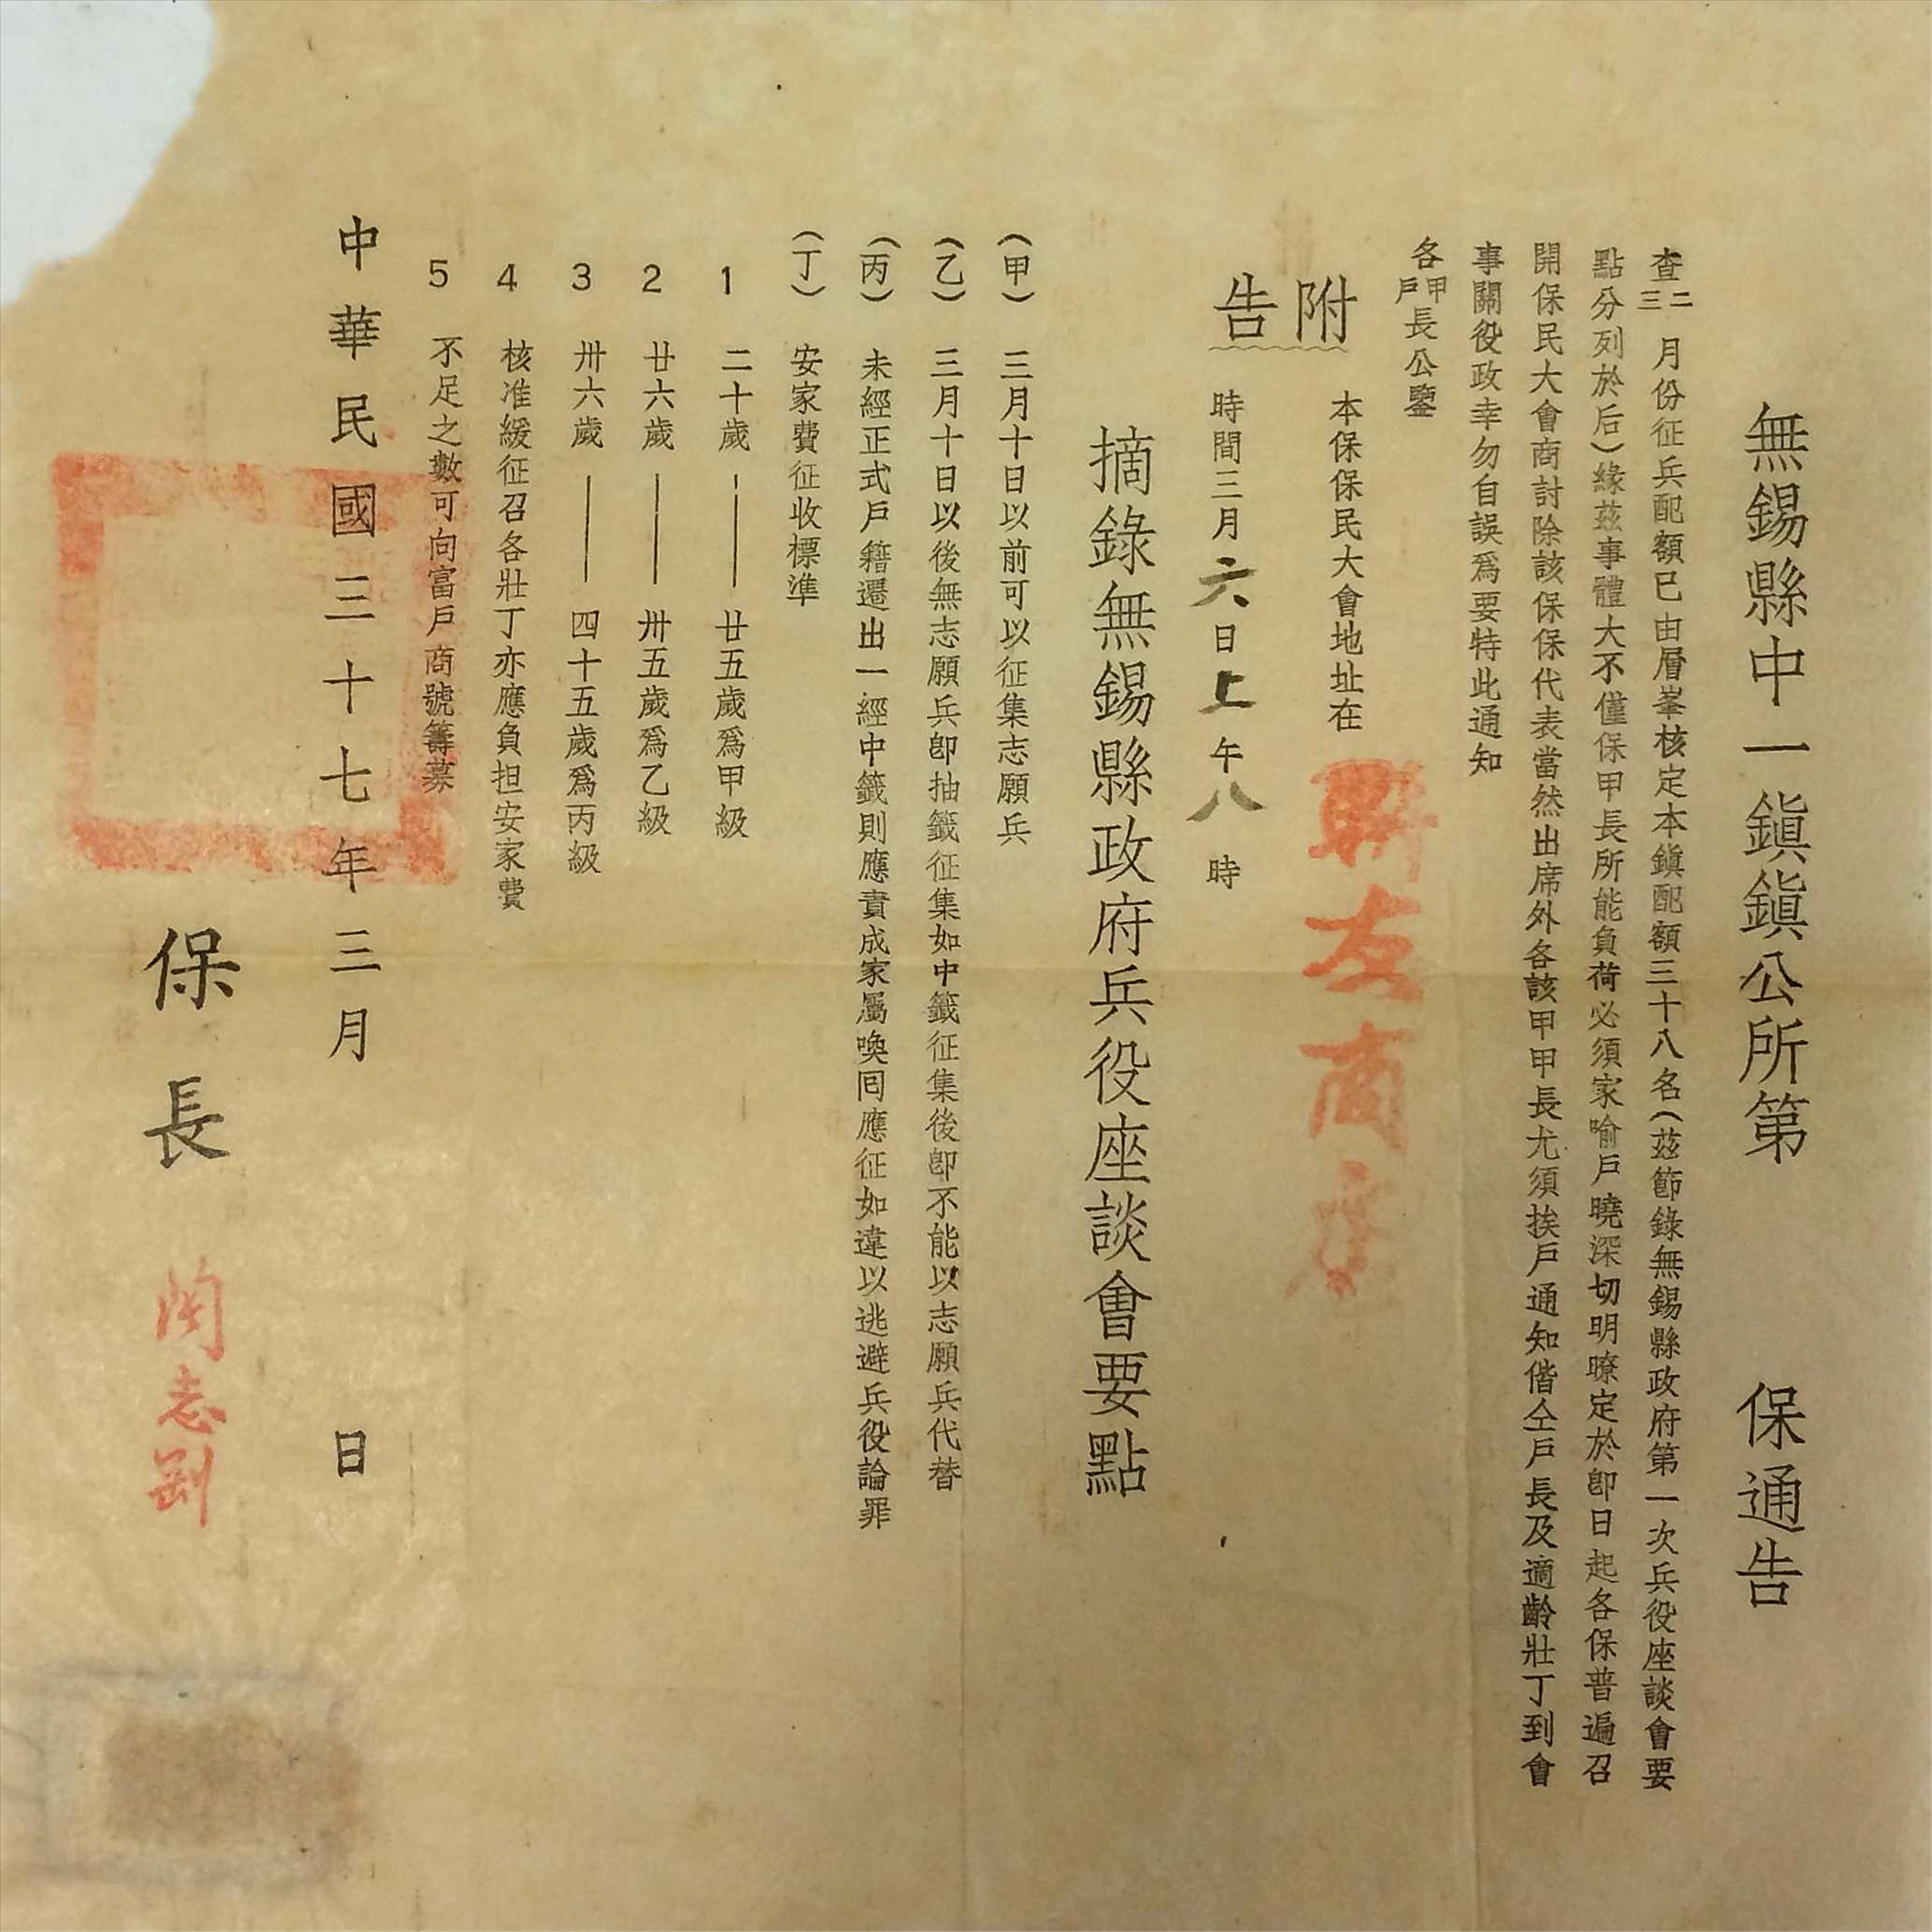 無錫縣中一鎭鎭公所第　保通告
查二三月份征兵配額已由層峯核定本鎭配額三十八名（茲節錄無錫縣政府第一次兵役座談會要
點分列於后）緣茲事體大不僅保甲長所能負荷必須家喻戶曉深切明瞭定於卽日起各保普遍召
開保民大會商討除該保保代表當然出席外各該甲甲長尤須挨戶通知偕仝戶長及適齡壯丁到會
事關役政幸勿自誤爲要特此通知
各甲戶長公鑒
附告
本保保民大會地址在　友商
時間三月六日上午八時
摘錄無錫縣政府兵役座談會要點
（甲）三月十日以前可以征集志願兵
（乙）三月十日以後無志願兵卽抽籤征集如中籤征集後卽不能以志願兵代替
（丙）未經正式戶籍遷出一經中籤則應責成家屬喚囘應征如違以逃避兵役論罪
（丁）安家費征收標準
1 二十歲——廿五歲爲甲級
2 廿六歲——卅五歲爲乙級
3 卅六歲——四十五歲爲丙級
4 核准緩征召各壯丁亦應負担安家費
5 不足之數可向富戶商號籌募
中華民國三十七年三月　日
保長　志剛